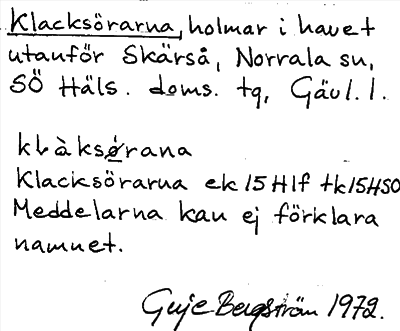 Klacksörarna, holmar i havet
utanför Skärså, Norrala sn,
SÖ Häls. doms. tg, Gävl. l.
klàksørana
Klacksörarna ek 15 H1f tk 15H SO
Meddelarna kan ej förklara
namnet.
Guje Bergström 1972.